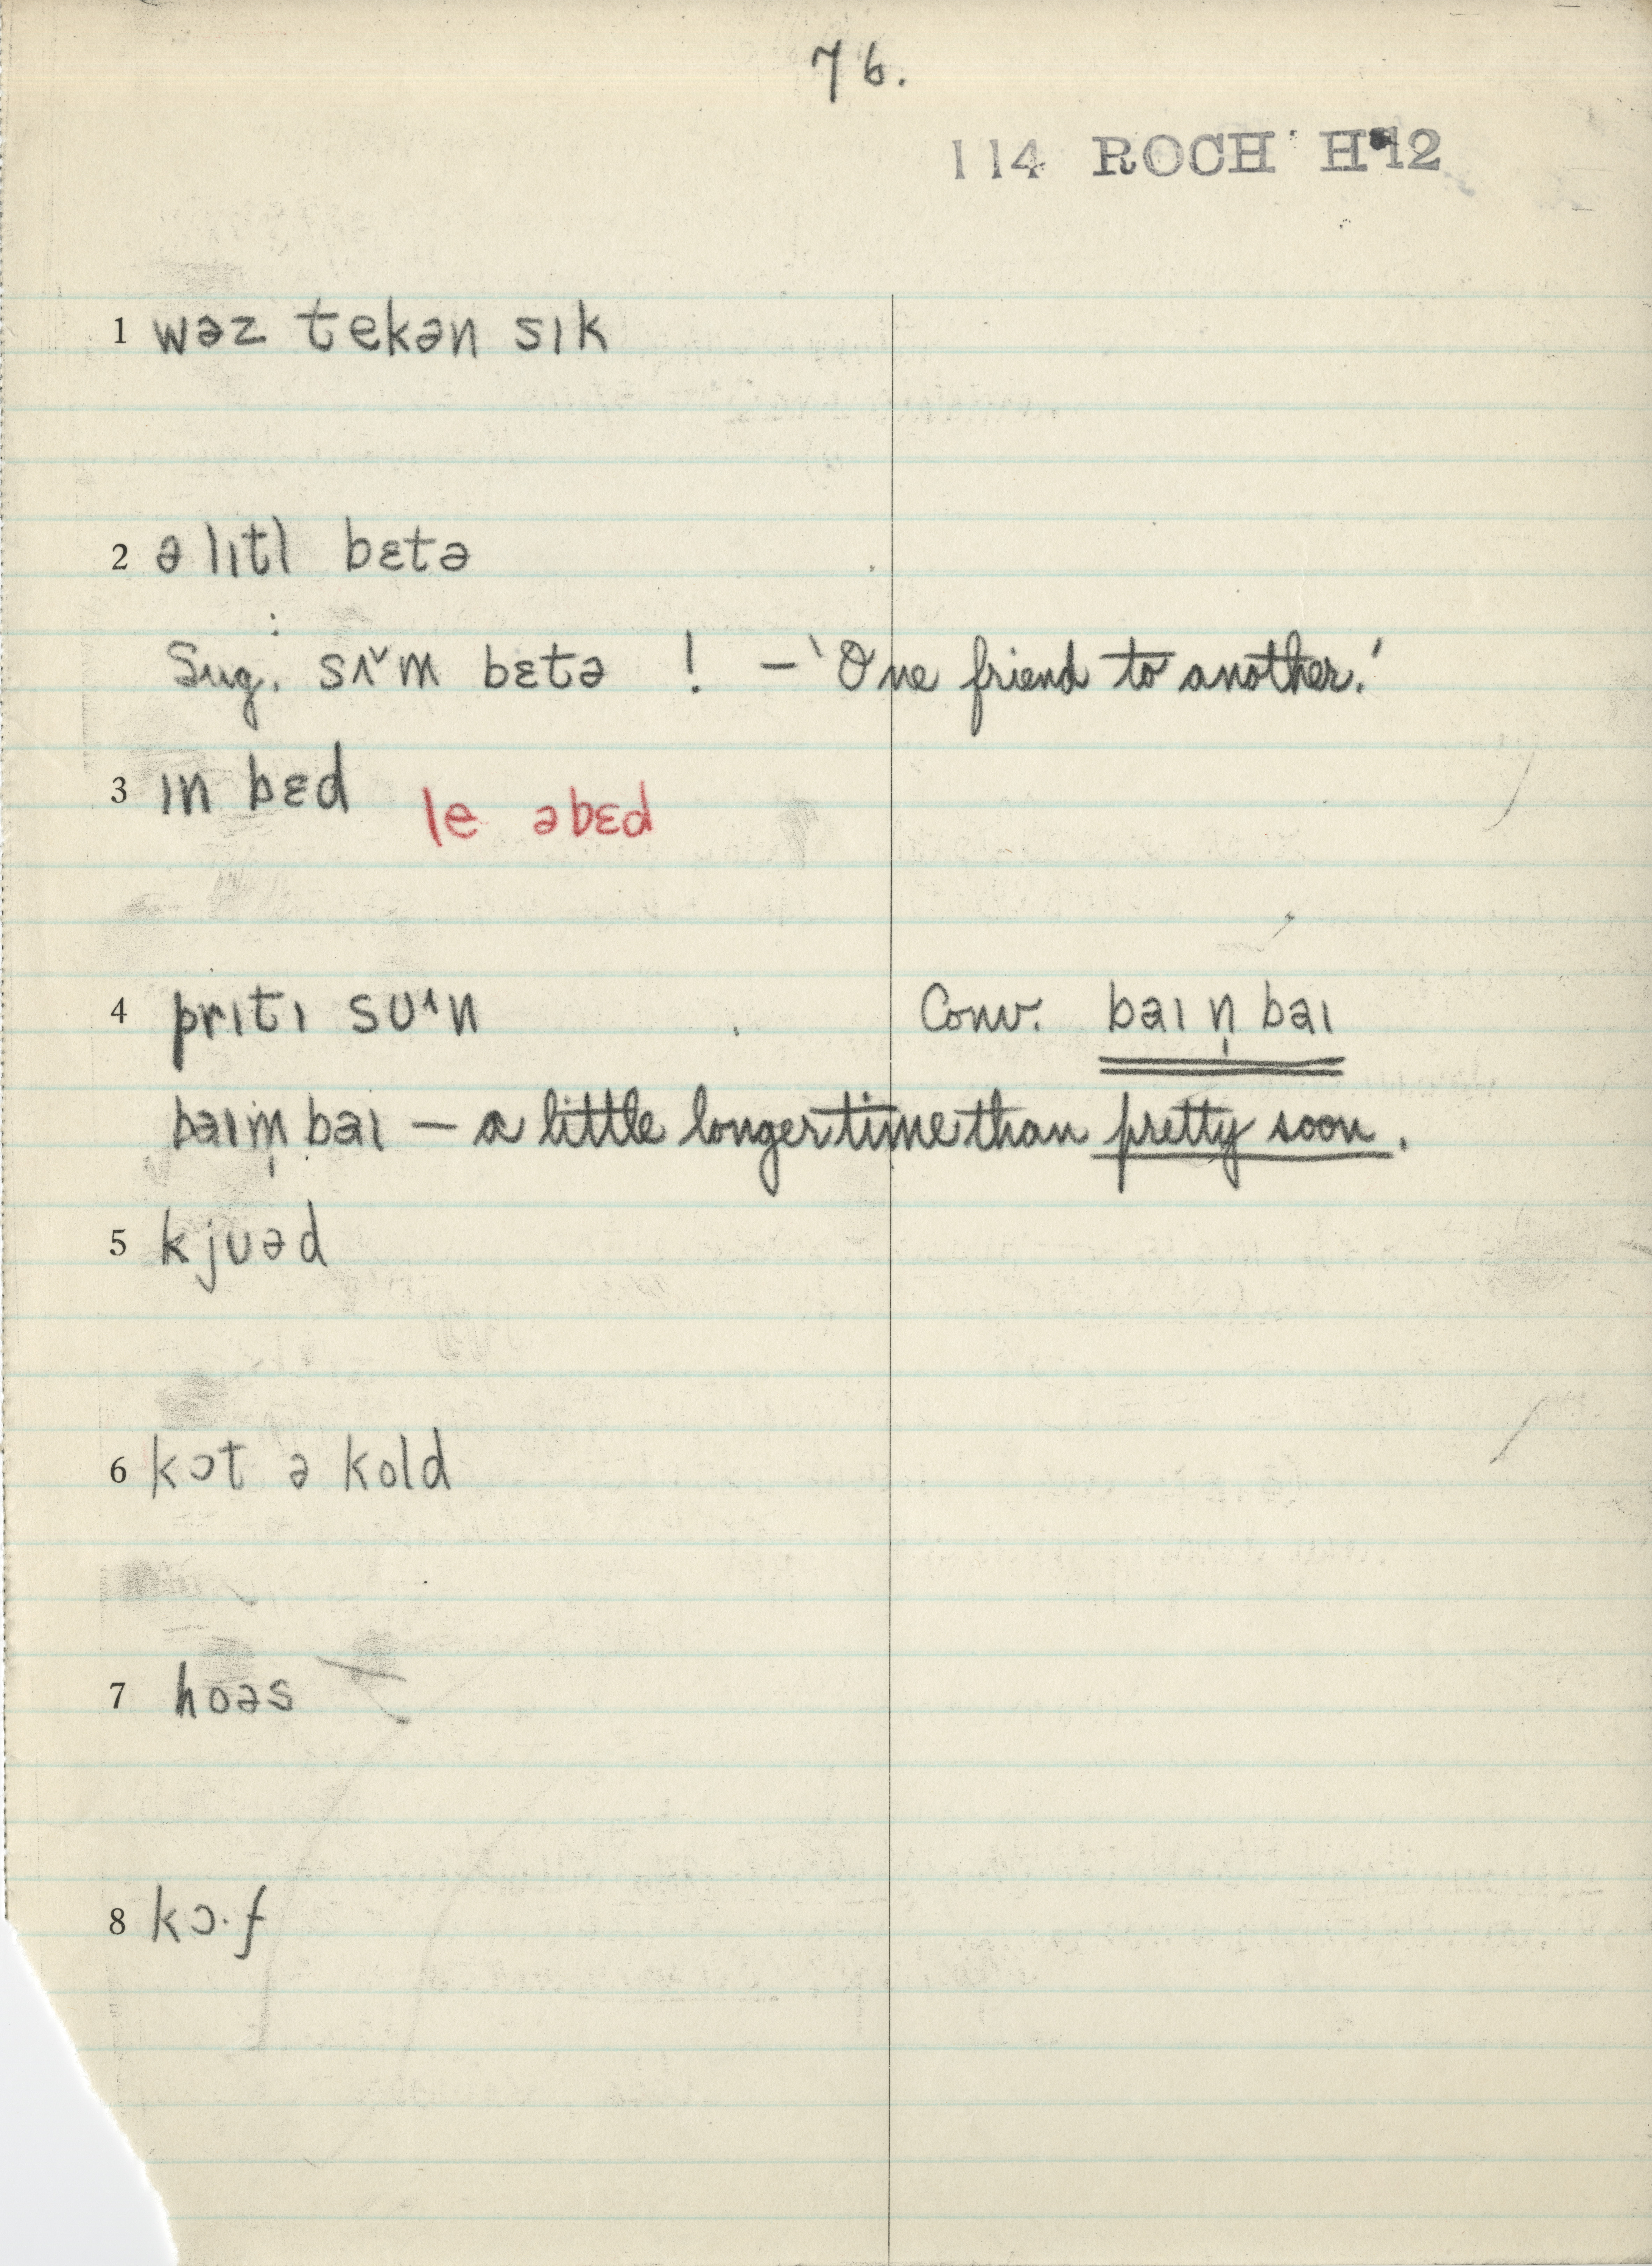 76.
114 ROCH H 12
1 wəz tekən sɪk
2 ə lɪtl bɛtə
Sug. : sʌ˅m bɛtə ! – 'One friend to another.'
3 ɪn bɛd le əbɛd
4 prɪtɪ sᴜ˄n Conv. baɪ n̩ baɪ
baɪm̩ baɪ – a little longer time than pretty soon.
5 kjᴜəd
6 kɔt ə kold
7 hoəs
8 kɔ·f